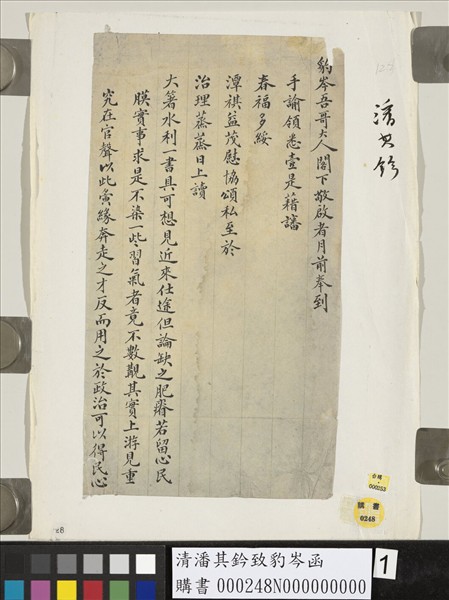 潘其鈐
豹岑吾哥大人閣下敬啟者月前奉到
手諭領悉壹是藉諗
春福多綏
潭祺益茂慰協頌私至於
治理蒸蒸日上讀
大箸水利一書具可想見近來仕途但論缺之肥瘠若留心民
瘼實事求是不染一些習氣者竟不數觀其實上游見重
究在官聲以此夤緣奔走之才反而用之於政治可以得民心
台贈
000253
購書
0248
清潘其鈐致豹岑函
購書 000248N000000000
1